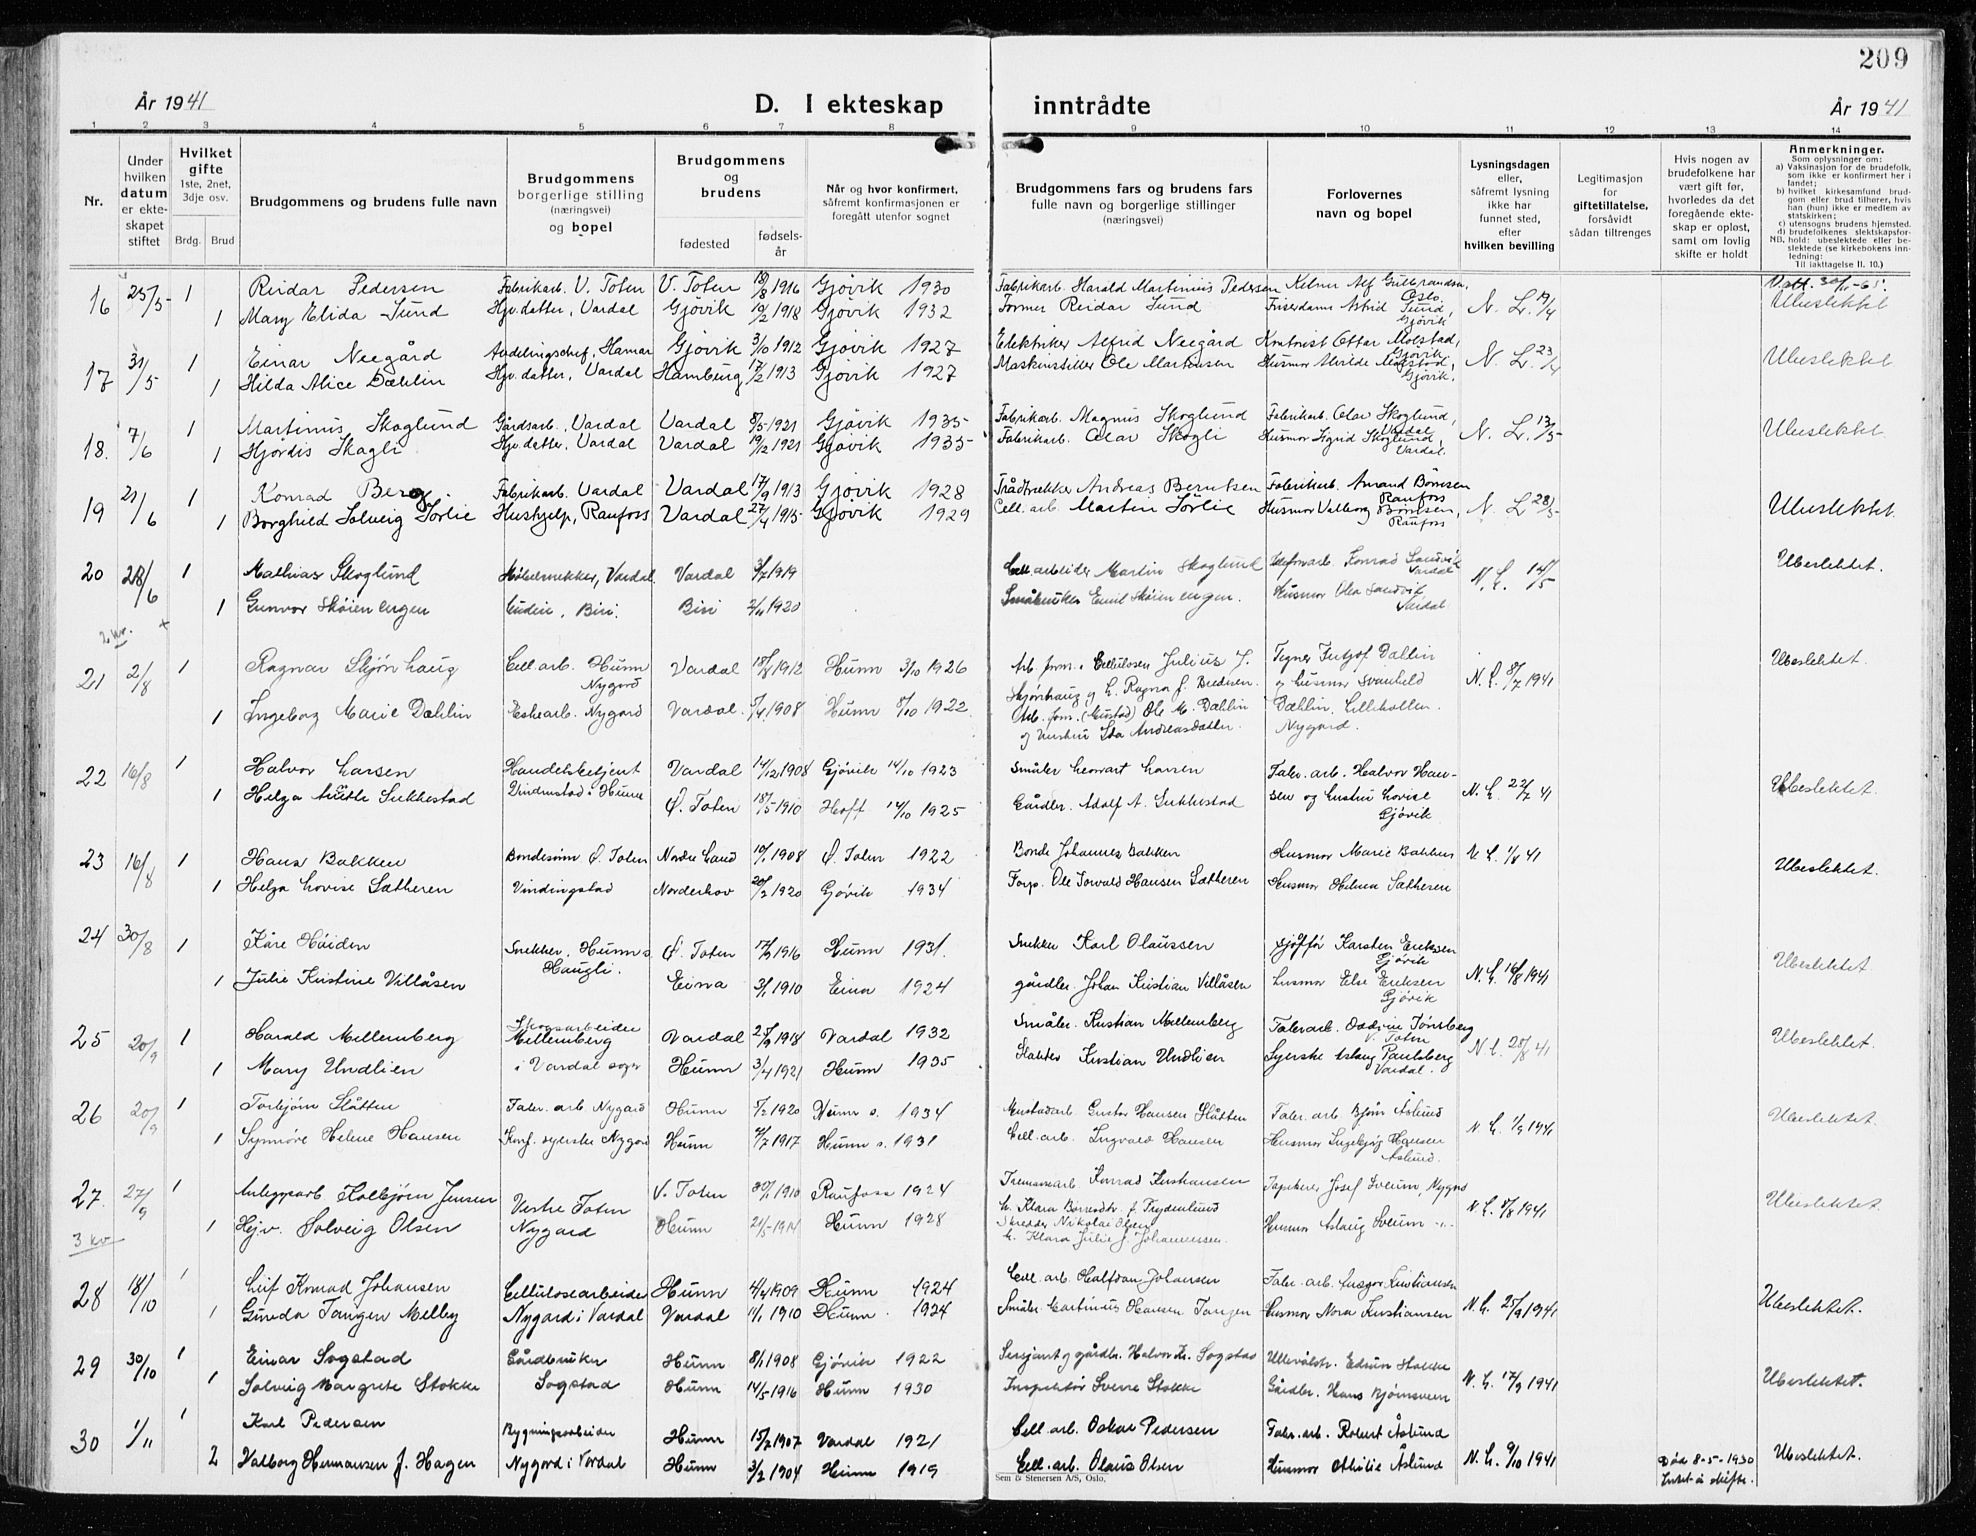 209
År 1941
D. I ekteskap inntrådte
År 1941
1 2 3 4 5 6 7 8 9 10 11 12 13 14
Nr.
Under hvilken datum er ekte- skapet stiftet
Hvilket gifte 1ste, 2net, 3dje osv.
Brdg. Brud
Brudgommens og brudens fulle navn
Brudgommens borgerlige stilling (næringsvei) og bopel
Brudgommens og brudens
fødested
fødsels- år
Når og hvor konfirmert, såfremt konfirmasjonen er foregått utenfor sognet
Brudgommens fars og brudens fars fulle navn og borgerlige stillinger (næringsvei)
Forlovernes navn og bopel
Lysningsdagen eller, såfremt lysning ikke har funnet sted, efter hvilken bevilling
Legitimasjon for giftetillatelse, forsåvidt sådan tiltrenges
Hvis nogen av brudefolkene har vært gift før, hvorledes da det foregående ekte- skap er opløst, samt om lovlig skifte er holdt
Anmerkninger.
Som oplysninger om:
a) Vaksinasjon for de brudefolk, som ikke er konfirmert her i landet;
b) hvilket kirkesamfund brud- gom eller brud tilhører, hvis han (hun) ikke er medlem av statskirken;
c) utensogns brudens hjemsted.
d) brudefolkenes slektskapsfor- hold: ubeslektede eller be- slektede (se kirkebokens inn- ledning:
NB. Til iakttagelse II. 10.)
16 25/5 1 Reidar Pedersen Fabrikarb. V. Toten V. Toten 18/8 1916 Gjøvik 1930 Fabrikarb. Harald Martinius Pedersen Kelner Alf Gulbrandsen, Oslo N. L. 19/4 Ubeslektet
1 Mary Elida Sund Hjv. datter, Vardal Gjøvik 19/2 1918 Gjøvik 1932 Former Reidar Sund Friserdame Astrid Sund, Gjøvik
17 31/5 1 Einar Neegård Avdelingschef, Hamar Gjøvik 3/10 1912 Gjøvik 1927 Elektriker Alfrid Neegård Kontorist Ottar Molstad, Gjøvik N. L. 23/4 Ubeslektet
1 Hilda Alice Dæhlin Hjv. datter, Vardal Hamburg 17/2 1913 Gjøvik 1927 Maskinstiller Ole Martinsen Husmor Alvilde Molstad, Gjøvik.
18. 7/6 1 Martinus Skoglund Gårdsarb., Vardal Vardal 8/5 1921 Gjøvik 1935 Fabrikarb. Magnus Skoglund Fabrikarb. Olav Skoglund, Vardal N. L. 13/5 Ubeslektet
1 Hjørdis Skogli Hjv. datter, Vardal Vardal 19/12 1921 Gjøvik 1935 Fabrikarb. Olav Skogli Husmor Sigrid Skoglund, Vardal.
19 21/6 1 Konrad Berg Fabrikarb. Vardal Vardal 17/9 1913 Gjøvik 1928 Trådtrekker Andreas Berntsen Fabrikarb. Amand Børnsen Raufoss N. L. 28/5 Ubeslektet.
1 Borghild Solveig Sørlie Hushjelp, Raufoss Vardal 27/4 1915 Gjøvik 1929 Cell. arb. Martin Sørlie Husmor Valborg Børnsen, Raufoss
20 28/6 1 Mathias Skoglund Møbelsnekker, Vardal Vardal 3/7 1919 Cell. arbeider Martin Skoglund Telefonarb. Konrad Sandvik Vardal N. L. 14/5 Ubeslektet.
1 Gunvor Skøienengen Biri. Biri 2/11 1920 Småbruker Emil Skøienengen. Husmor Olea Sandvik Vardal
2 kv. +
21 2/8 1 Ragnar Skjønhaug Cell. arb. Hunn Nygard Vardal 18/8 1912 Hunn 3/10 1926 Arb. form. i Cellulosen Julius J. Skjønhaug og h. Ragna f. Bredesen. Tegner Dæhlin og husmor Svanhild N. L. 8/7 1941 Ubeslektet.
1 Ingeborg Marie Dæhlin Eskearb. Nygard Vardal. 5/4 1908 Hunn 8/10 1922 Arb. form. (Mustad) Ole M. Dæhlin og hustru Ida Andreasdatter. Dæhlin, Lillekollen. Nygard.
22 16/8 1 Halvor Larsen Handelsbetjent Vardal 14/12 1908 Gjøvik 14/10 1923 Småbr. Lars Larsen Fabr. arb. Halvor Han- N. L. 22/7 41 Ubeslektet.
1 Helga Sukkestad i Hunn Ø. Toten 18/5 1910 Hoff 14/10 1925 Gårdbr. Adolf A. Sukkestad sen og hustru Lovise Gjøvik
23 16/8 1 Hans Bakken Bondesønn Ø. Toten Nordre Land 19/1 1908 Ø. Toten 1922 Bonde Johannes Bakken Husmor Marie Bakken N. L. 1/8 41 Ubeslektet.
1 Helga Lovise Sætheren Vindingstad Norderhov 20/2 1920 Gjøvik 1934 Forp. Ole Torvald Hansen Sætheren Husmor Helma Sætheren
24 30/8 1 Kåre Høiden Snekker, Hunn s. Haugli. Ø. Toten 17/9 1916 Hunn 1931. Snekker Karl Olaussen sjåffør Karsten Eriksen Gjøvik N. L. 16/8 1941 Ubeslektet
1 Julie Kristine Villåsen Eina 3/1 1910 Eina 1924 gårdbr. Johan Kristian Villåsen husmor Else Eriksen Gjøvik
25 20/9 1 Harald Mellemberg Skogsarbeider Mellemberg Vardal 25/9 1918 Vardal 1932 Småbr. Kristian Mellemberg Fabrarb. Oddvin Tønsberg V. Toten N. L. 25/8 41 Ubeslektet.
1 Mary Undlien i Vardal sogn Hunn 3/4 1921 Hunn 1935 Slakter Kristian Undlien Syerske Aslaug Paulsberg Vardal.
26 20/9 1 Torbjørn Slåtten Fabr. arb Nygard Hunn 5/2 1920 Hunn s. 1934 Mustadarb. Gustav Hansen Slåtten Fabr. arb Bjørn Åslund N. L. 1/9 1941 Ubeslektet.
1 Synnøve Helene Hansen Konf. syerske Nygard Hunn 4/7 1917 Hunn s. 1931 Cell. arb. Ingvald Hansen Husmor Ingebjørg Hansen Åslund.
27. 27/9 1 Anleggsarb Kolbjørn Jensen Vestre Toten V. Toten 30/1 1910 Raufoss 1924 Tremassearb. Konrad Kristiansen h. Klara f. Frydenlund Tapetserer Josef Sveum, Nygard N. L. 8/8 1941 Ubeslektet.
3 kv 1 Hjv. Solveig Olsen Nygard Hunn 21/5-1914 Hunn 1928 Skredder Nikolai Olsen h. Klara Julie f. Johannessen. Husmor Aslaug Sveum -"-
28 18/10 1 Leif Konrad Johansen Cellulosearbeider Hunn 4/4 1909 Hunn 1924 Cell. arb. Halfdan Johansen Fabr. arb. Kristiansen N. L. 25/9 1941 Ubeslektet.
1 Gunda Tangen Melby Nygard i Vardal Vardal 14/1 1910 Hunn. 1924 Småbr. Martinius Hansen Tangen Husmor Nora Kristiansen
29 30/10 1 Einar Sogstad Gårdbruker Hunn 8/1 1908 Gjøvik 1922 Sersjant og gårdbr. Halvor Kr. Sogstad Ullevålstr. Edvin Stokke N. L. 17/9 1941 Ubeslektet.
1 Solveig Margrete Stokke Sogstad Hunn 14/5 1916 Hunn 1930 Inspektør Sverre Stokke Gårdbr. Hans Bjørnsveen
30 1/11 1 Karl Pedersen Bygningsarbeider Hunn 15/2 1907 Vardal 1921 Cell. arb. Oskar Pedersen Fabr. arb. Robert Åslund N. L. 9/10 1941 Ubeslektet.
2 Valborg Hermansen f. Hagen Nygard i Vardal Hunn 3/2 1904 Hunn 1919 Cell. arb. Olaus Olsen Husmor Athilie Åslund Død 8-5-1930
Sem & Stenersen A/S, Oslo.